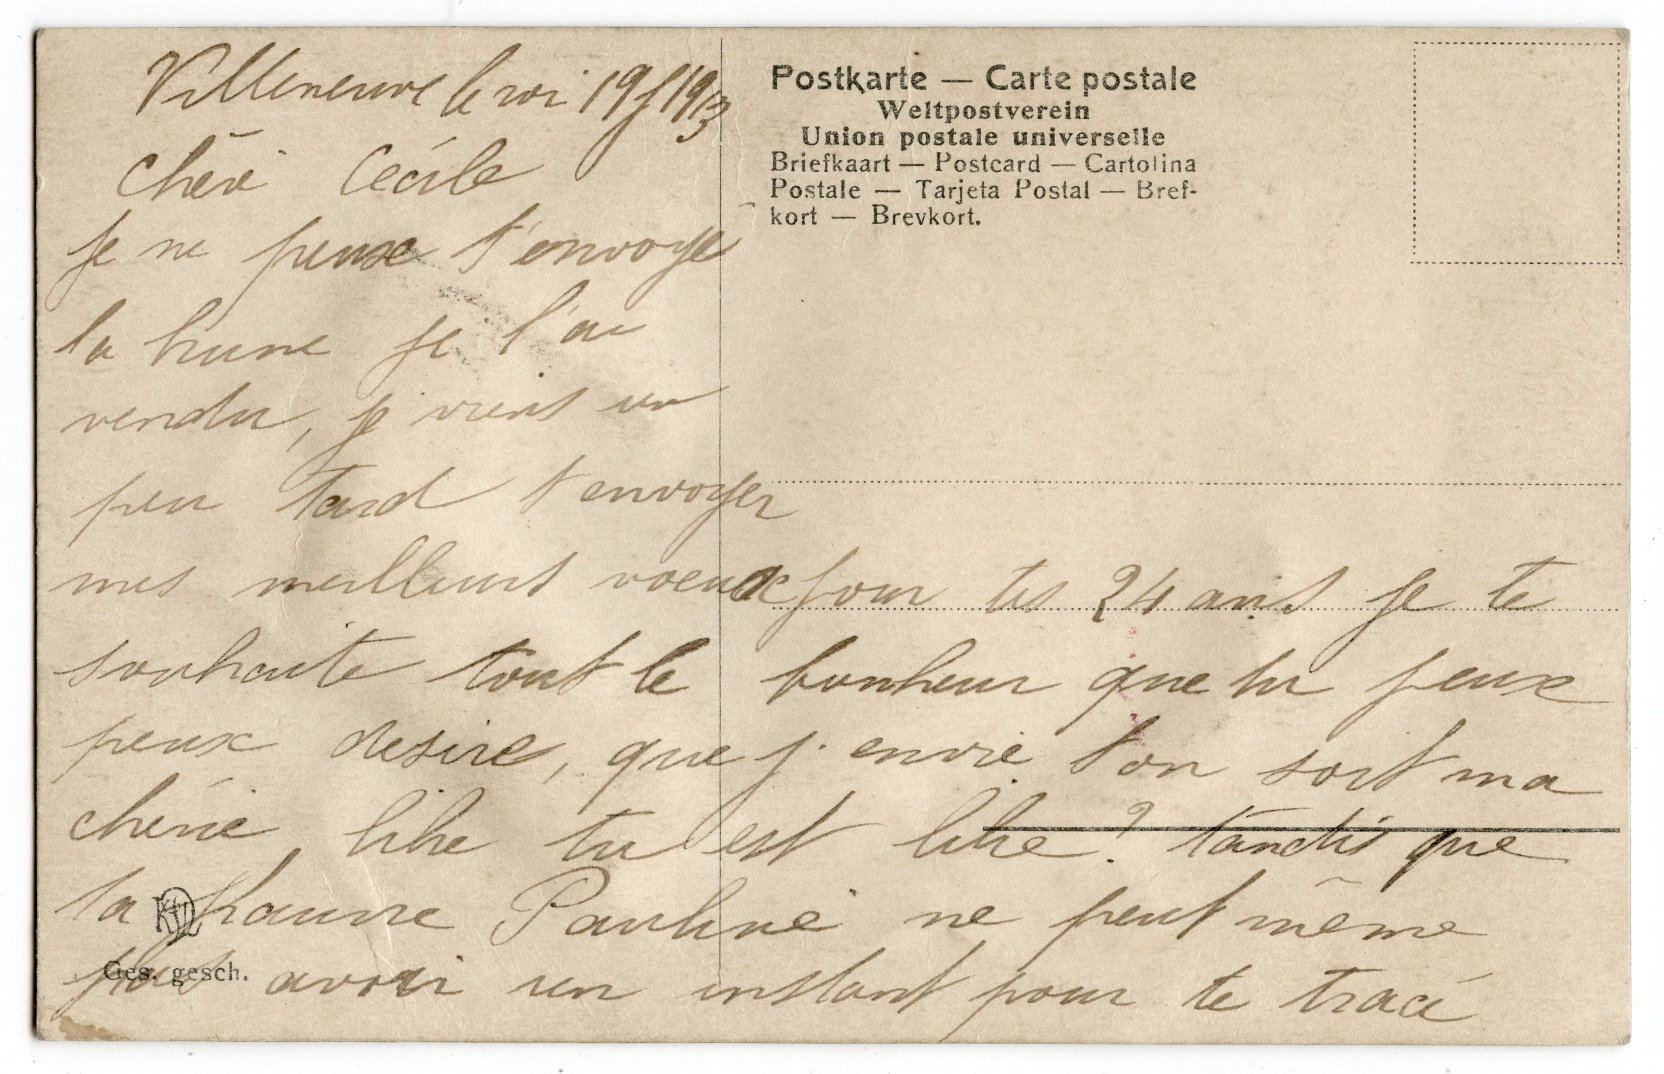 Villeneuve le roi 19 1913
Chère Cécile
Je ne peux t'envoyé
la je l'ai
vendu, je viens un
peu tard t'envoyer
mes meilleurs voeux pour tes 24 ans Je te
souhaite tout le bonheur que tu peux
peux desire, que j'envie ton sort ma
chérie libre tu est libre? tandis que
la Pauvre Pauline ne peut même
pas avoir un instant pour te tracé
Postkarte — Carte postale
Weltpostverein
Union postale universelle
Briefkaart — Postcard — Cartolina
Postale — Tarjeta Postal — Bref-
kort — Brevkort.
Ges. gesch.